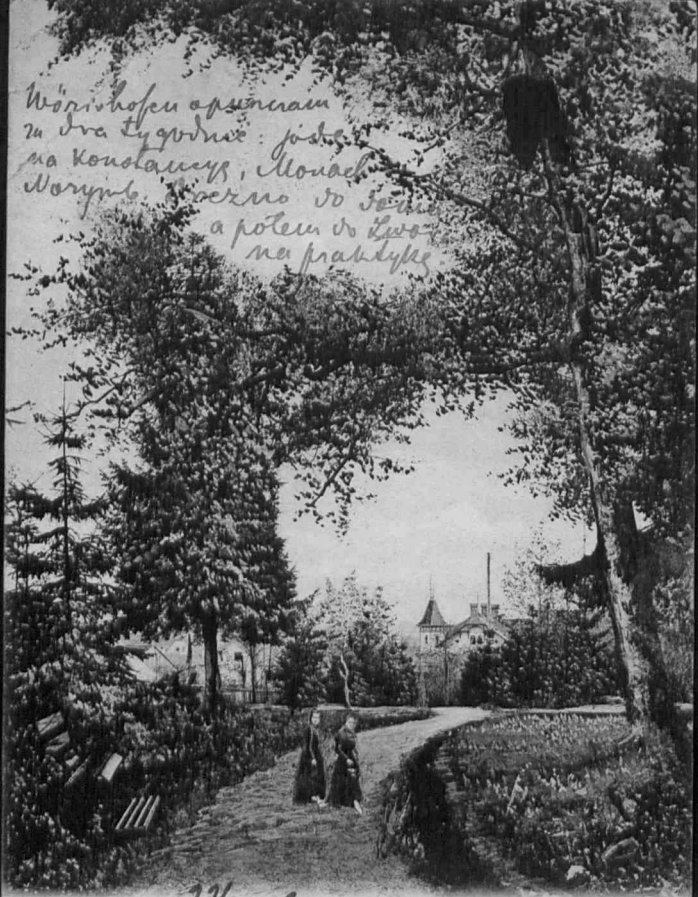 Wörishofen opuszczam
za dwa tygodnie. jadę
na Konstancyę, Monach
Norymb do domu
a potem do Lwow
na praktykę.